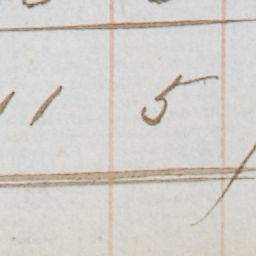 11 5